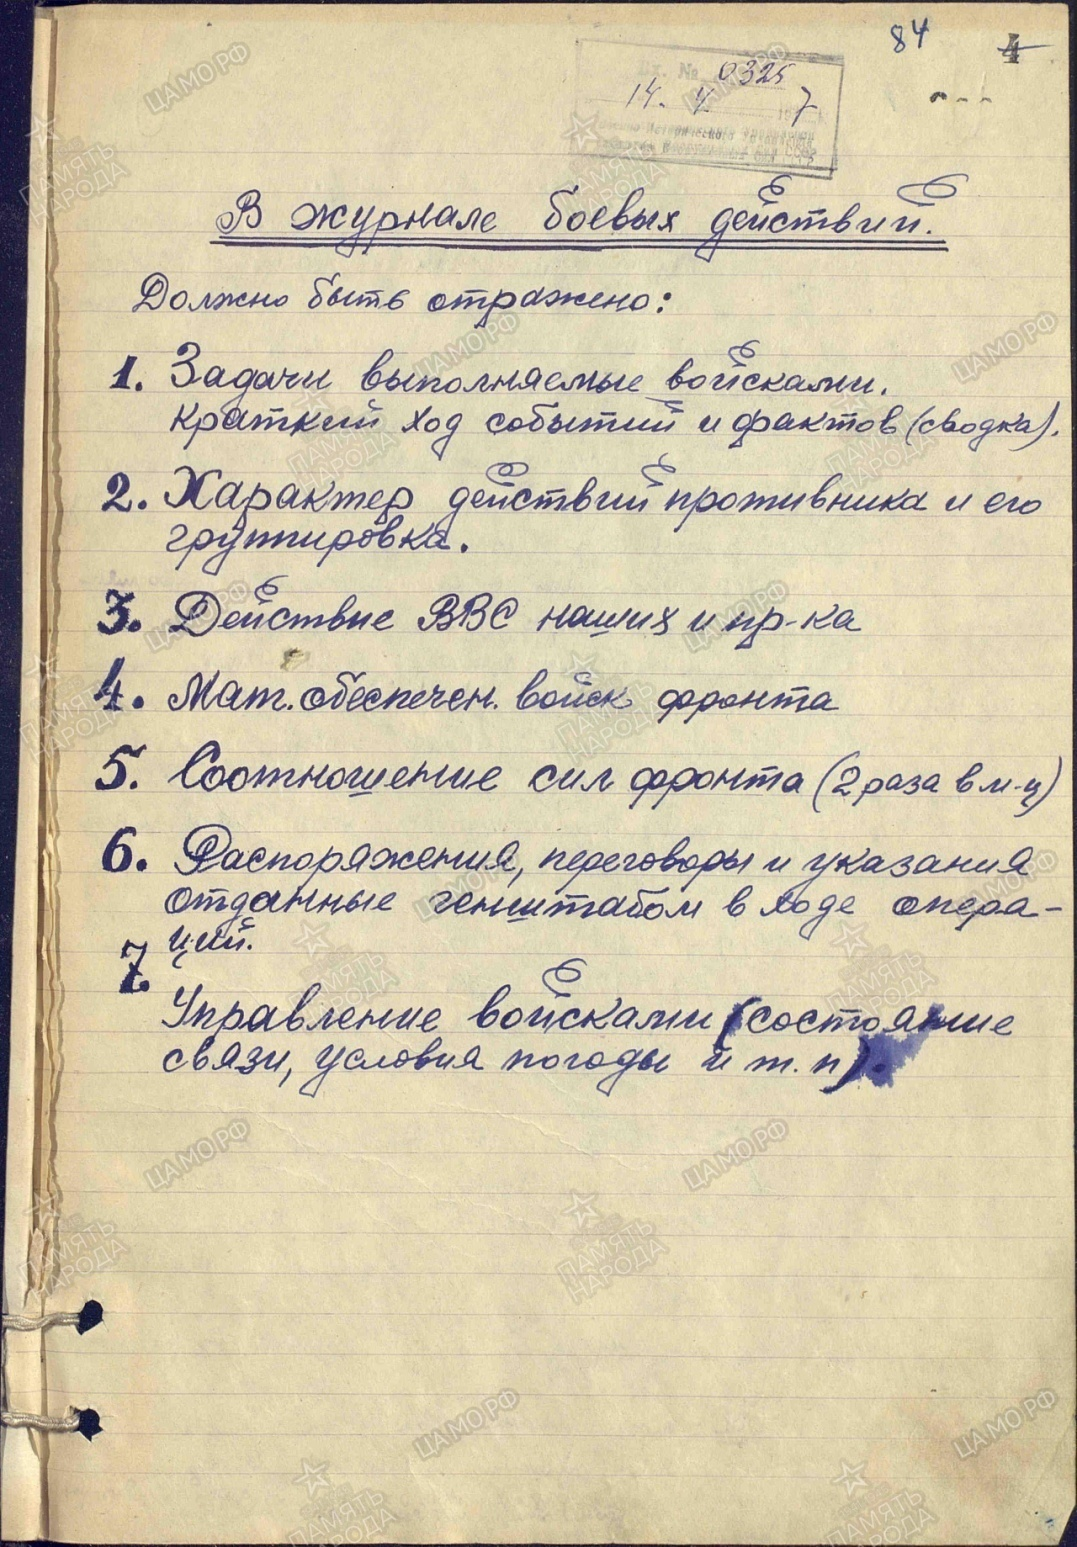 84 4
Вх. № 0325
14. 4. 7
В журнале боевых действий.
Должно быть отражено:
1. Задачи выполняемые войсками.
Краткий ход событий и фактов (сводка).
2. Характер действий противника и его
группировка.
3. Действие ВВС наших и пр-ка
4. Мат. обеспечен. войск фронта
5. Соотношение сил фронта (2 раза в м-ц)
6. Распоряжения, переговоры и указания
отданные генштабом в ходе опера-
ций.
7.
Управление войсками (состояние
связи, условия погоды и т. п).
ЦАМО РФ
ПАМЯТЬ
НАРОДА